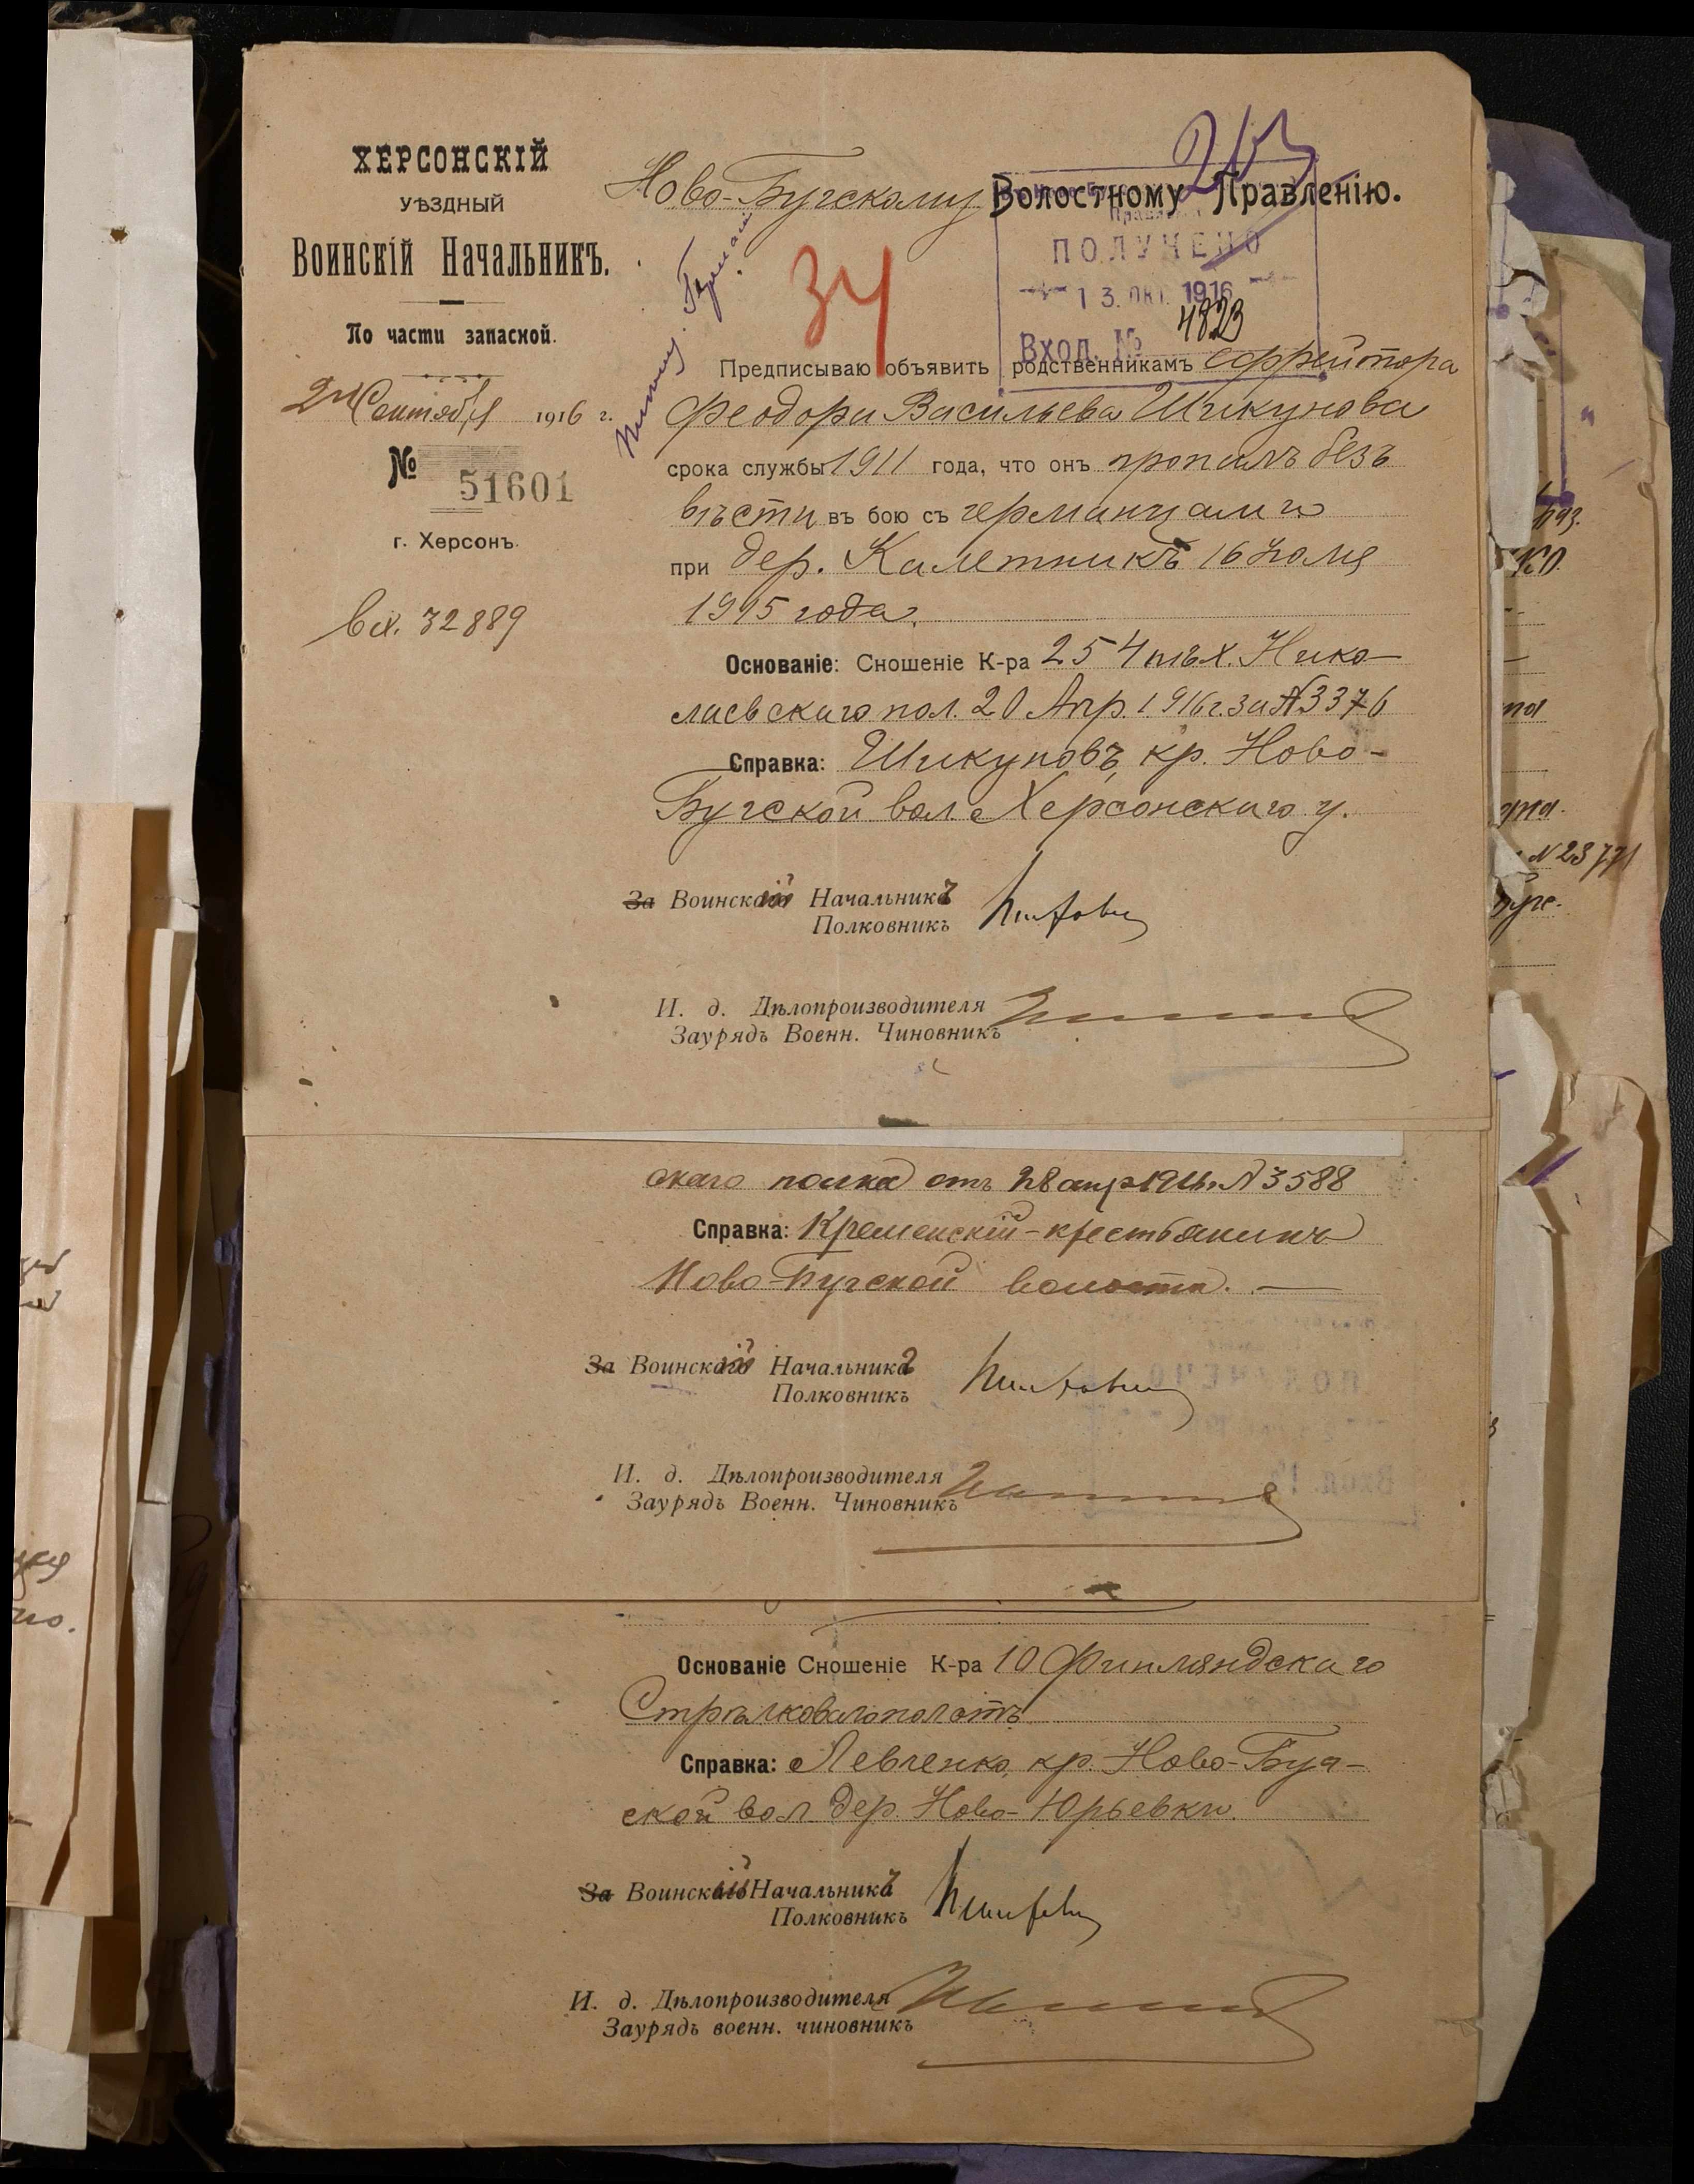 ХЕРСОНСКІЙ
УѢЗДНЫЙ
ВОИНСКІЙ НАЧАЛЬНИКЪ.
По части запасной.
Сентября 1916 г.
№ 51601
г. Херсонъ.
Вх. 32889
Ново-Бугскому Волостному Правленію.
34
ПОЛУЧЕНО
13. ОКТ. 1916
Вход. № 4823
Предписываю объявить родственникамъ ефрейтора
Феодора Васильева Шикунова
срока службы 1911 года, что онъ пропалъ безъ
вѣсти въ бою съ германцами
при дер. Калетникъ 16 Іюля
1915 года.
Основаніе: Сношеніе К-ра 254 пѣх. Нико-
лаевскаго пол. 20 Апр. 1916 г. за № 3376
Справка: Шикуновъ, кр. Ново-
Бугской вол. Херсонскаго у.
За Воинскій Начальникъ
Полковникъ
И. д. Дѣлопроизводителя
Заурядъ Военн. Чиновникъ
скаго полка отъ 28 апр 1916 г. № 3588
Справка: Кременскій - крестьянинъ
Ново-Бугской волости. —
За Воинскій Начальникъ
Полковникъ
И. д. Дѣлопроизводителя
Заурядъ Военн. Чиновникъ
Основаніе Сношеніе К-ра 10 Финляндскаго
Стрѣлковаго пол отъ
Справка: Левченко, кр. Ново-Буг-
ской вол дер. Ново-Юрьевки.
За Воинскій Начальникъ
Полковникъ
И. д. Дѣлопроизводителя
Заурядъ военн. чиновникъ
№ 23771